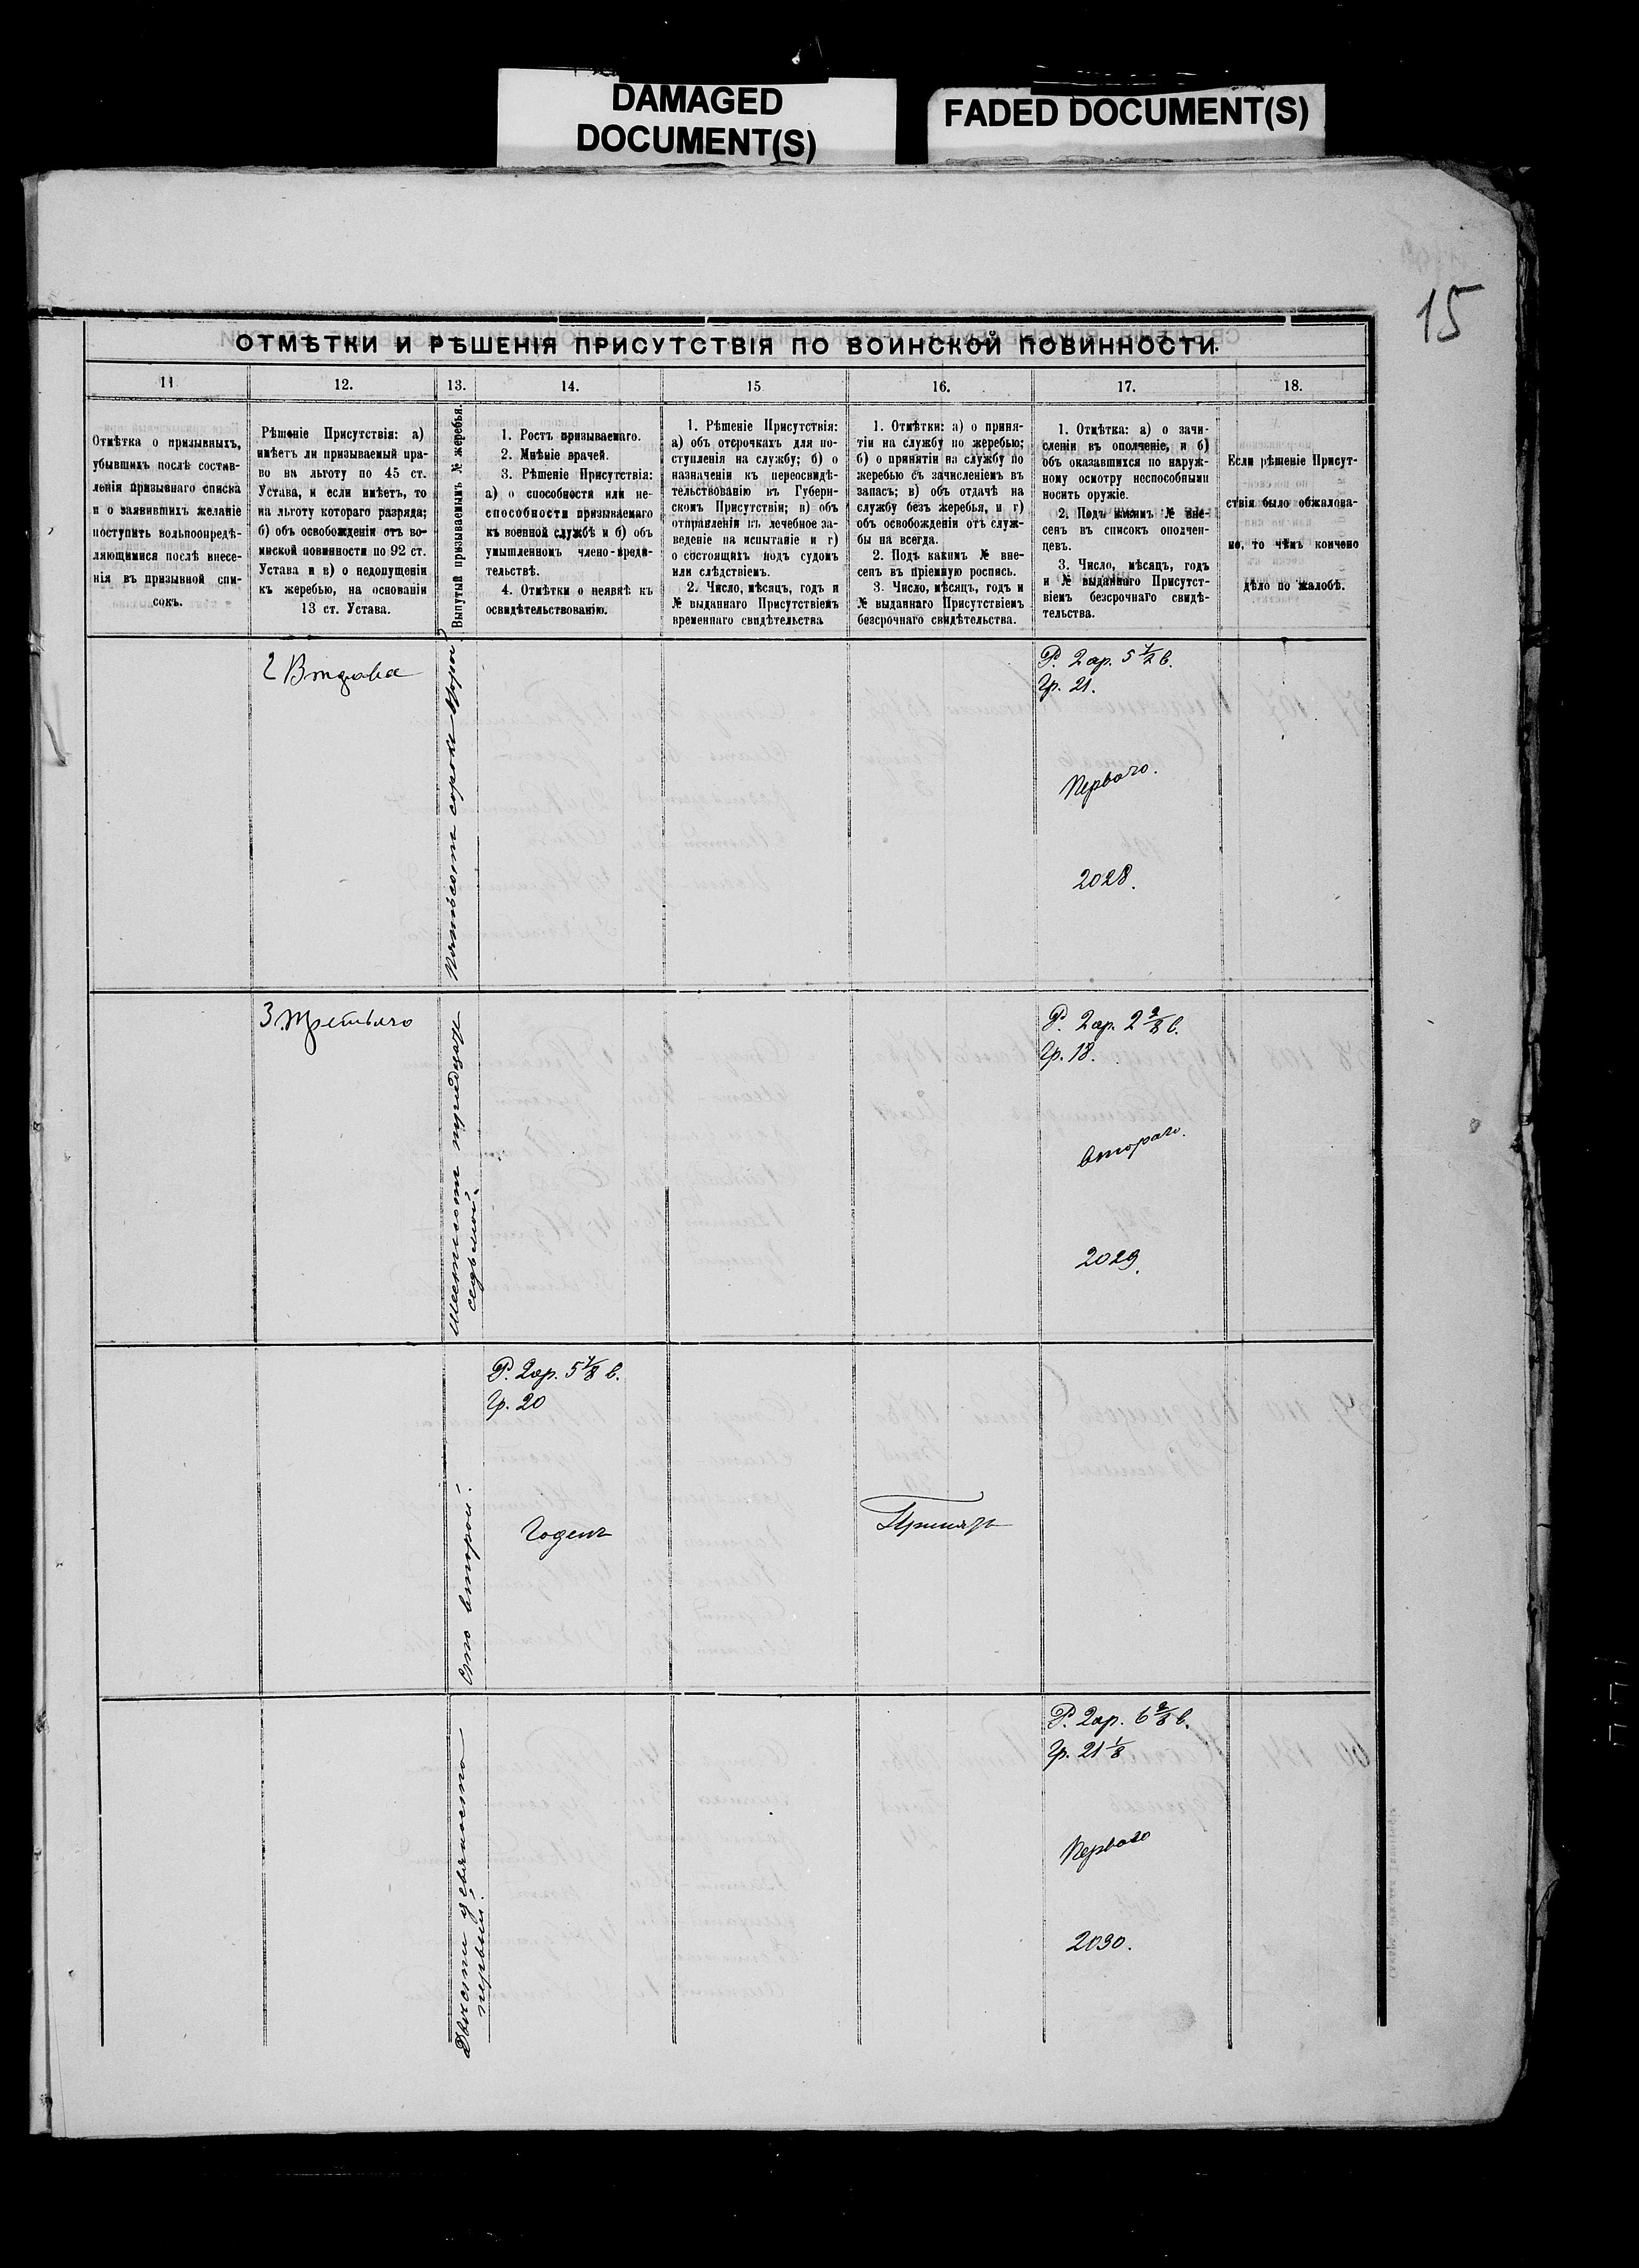 DAMAGED
DOCUMENT(S)
FADED DOCUMENT(S)
15
ОТМѢТКИ И РѢШЕНІЯ ПРИСУТСТВІЯ ПО ВОИНСКОЙ ПОВИННОСТИ.
11
12.
13.
14.
15
16.
17.
18.
Отмѣтка о призывныхъ,
убывшихъ послѣ состав-
ленія призывнаго списка
и о заявившихъ желаніе
поступить вольноопредѣ-
ляющимися послѣ внесе-
нія въ призывной спи-
сокъ.
Рѣшеніе Присутствія: а)
имѣетъ ли призываемый пра-
во на льготу по 45 ст.
Устава, и если имѣетъ, то
на льготу котораго разряда;
б) объ освобожденіи отъ во-
инской повинности по 92 ст.
Устава и в) о недопущеніи
къ жеребью, на основаніи
13 ст. Устава.
Вынутый призываемымъ № жеребья.
1. Ростъ призываемаго.
2. Мнѣніе врачей.
3. Рѣшеніе Присутствія:
а) о способности или не-
способности призываемаго
къ военной службѣ и б) объ
умышленномъ члено-вреди-
тельствѣ.
4. Отмѣтки о неявкѣ къ
освидѣтельствованію.
1. Рѣшеніе Присутствія:
а) объ отсрочкахъ для по-
ступленія на службу; б) о
назначеніи къ переосвидѣ-
тельствованію въ Губерн-
скомъ Присутствіи; в) объ
отправленіи въ лечебное за-
веденіе на испытаніе и г)
о состоящихъ подъ судомъ
или слѣдствіемъ.
2. Число, мѣсяцъ, годъ и
№ выданнаго Присутствіемъ
временнаго свидѣтельства
1. Отмѣтки: а) о приня-
тіи на службу по жеребью;
б) о принятіи на службу по
жеребью съ зачисленіемъ въ
запасъ; в) объ отдачѣ на
службу безъ жеребья, и г)
объ освобожденіи отъ служ-
бы на всегда.
2. Подъ какимъ № вне-
сенъ въ пріемную роспись.
3. Число, мѣсяцъ, годъ и
№ выданнаго Присутствіемъ
безсрочнаго свидѣтельства.
1. Отмѣтка: а) о зачи-
сленіи въ ополченіе, и б)
объ оказавшихся по наруж-
ному осмотру неспособными
носить оружіе.
2. Подъ какимъ № вне-
сенъ въ списокъ ополчен-
цевъ.
3. Число, мѣсяцъ, годъ
и № выданнаго Присутст-
віемъ безсрочнаго свидѣ-
тельства.
Если рѣшеніе Присут-
ствія было обжалова-
но, то чѣмъ кончено
дѣло по жалобѣ.
Пятьсотъ сорокъ второй
Р. 2 ар. 5 1/2 в.
Гр. 21.
Перваго.
2028.
3 Третьяго
Шестьсотъ тридцать
седьмой.
Р. 2 ар. 2 2/8 в.
Гр. 18.
Втораго.
2029.
Сто второй.
Р. 2 ар. 5 1/8 в.
Гр. 20
Годенъ
Принятъ
Двѣсти девяносто
первый.
Р. 2 ар. 6 2/8 в.
Гр. 21 1/8
Перваго
2030.